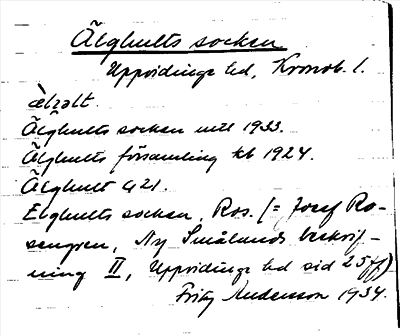 Älghults socken
Uppvidinge hd, Kronob. l.
Älghults socken mtl 1933.
Älghults församling kb 1924.
Älghult G21.
Elghults socken, Ros. (= Josef Ro-
sengren, Ny Smålands beskrif-
ning II, Uppvidinge hd sid 25ff)
Fritz Andersson 1934.